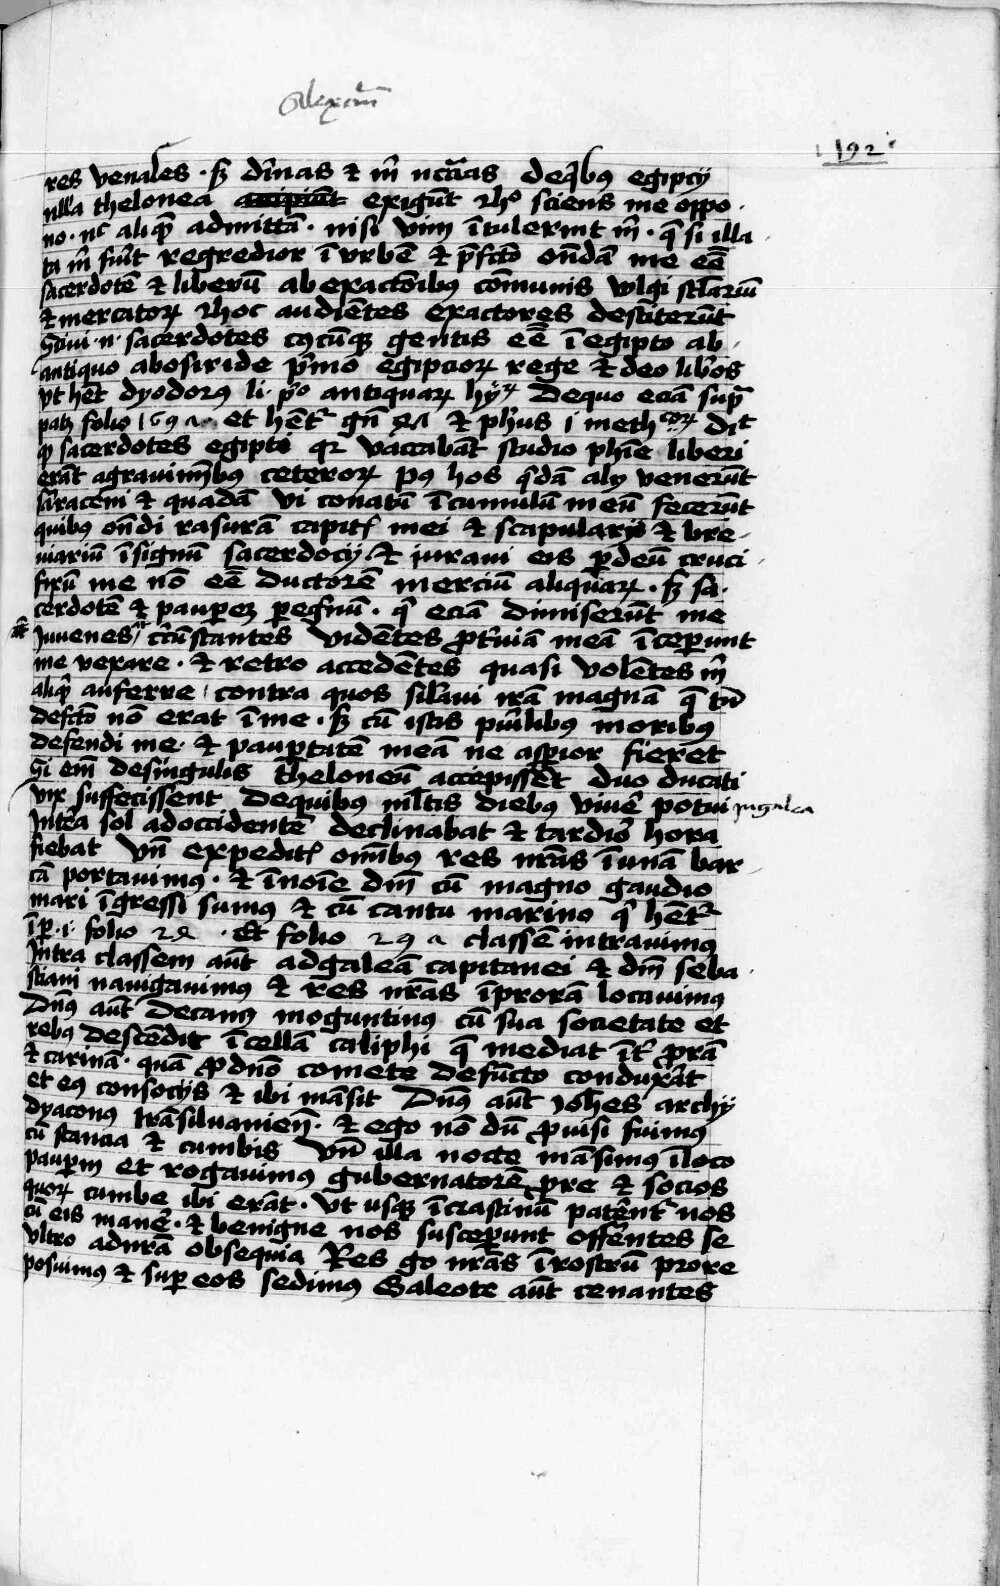 Alexam̄
192
res venales · sʒ dīnas et m̄ nc̄cāias de q̄bus egipcij
nulla thelonea exigūt et hoc sciens me oppo·
no · nc̄ aliqͣ admittā · nisi vim ītulerint m̄ · q̄ si illa
ta m̄ fūit regredior ī vrbē et p̄fcto ondā me eē
sacerdotē et liberū ab exactōibus cōmunis vulgi sclariū
et mercatoꝝ et hoc audiētes exactores destiterūt
Sciui · n · sacerdotes cꝯcūqʒ gentis eē ī egipto ab
antiquo ab osiride p̄mo egipcioꝝ rege et deo lib̄os
vt het dyodorus li · p̄o antiquaꝝ hyꝝ De quo eciā supͣ
patʒ folio 169 a et hetʳ gn̄ et ph̄us i meth dicͭ
ꝙ sacerdotes egipti qꝛ vaccabāt studio ph̄ie liberi
erāt a grauimībus ceteroꝝ Pꝰ hos qͥdā alij venerūt
sarraceni et quadā vi conatū ī cumulū meū fecerūt
quibus ondi rasurā capitꝭ mei et scapulariū et bre
uiariū ī signū sacerdocij et iuraui eis ꝑ deū cruci
fixū me nō eē ductorē merciū aliquaꝝ · sʒ sa
cerdotē et paupeꝝ peg̃nū · qͥ eciā dimiserūt me
Iuuenes aūt cͥcūstantes vidētes ꝓtuiā meā īceperunt
me vexare · et retro accedētes quasi volētes m̄
aliqͥ auferre contra quos silaui irā magnā q̄ tn̄
defcto nō erat ī me · sʒ cū istis puīlibus moribus
defendi me · et paupertatē meā ne asperior fieret
Si em̄ de singulis theloneū accepissēt duo ducati
vix suffecissent de quibus mltis diebus viuē potui in galea
Intra sol ad occidentē declinabat et tardiō hora
fiebat vn̄ expeditꝭ omībus res nrās ī unā bar
cā portauimus · et ī noīe dm̄ cū magno gaudio
mari īgressi sumus et cū cantu marino qͥ hetʳ
ī p · i · folio 28 · Et folio 29 a classē intrauimus
Intra classem aūt ad galeā capitanei et dm̄ seba
stiani nauigauimus et res nrās ī prorā locauimus
Dn̄s aūt Decanus moguntinus cū sua societate et
rebus descēdit ī cellā caliphi q̄ mediat īt ꝓrā
et carinā · quā ꝓ dn̄o comete defūcto conduxāt
et eꝰ consocijs et ibi māsit Dn̄s aūt iohēs archy
dyaconus trāsiluanieñ · et ego nō dū ꝓuisi fuimus
cū stancia et cumbis vn̄ illa nocte māsimus ī loco
pauperm et rogauimus gubernatorē ꝓre et socios
quoꝝ cumbe ibi erāt · vt usqʒ ī crastinū patēnt nos
cū eis manē · et benigne nos susceperunt offētes se
vltro ad nrā obsequia Res go nrās ī rostrū prore
posuimus et super eos sedimus Galeote aūt cenantes